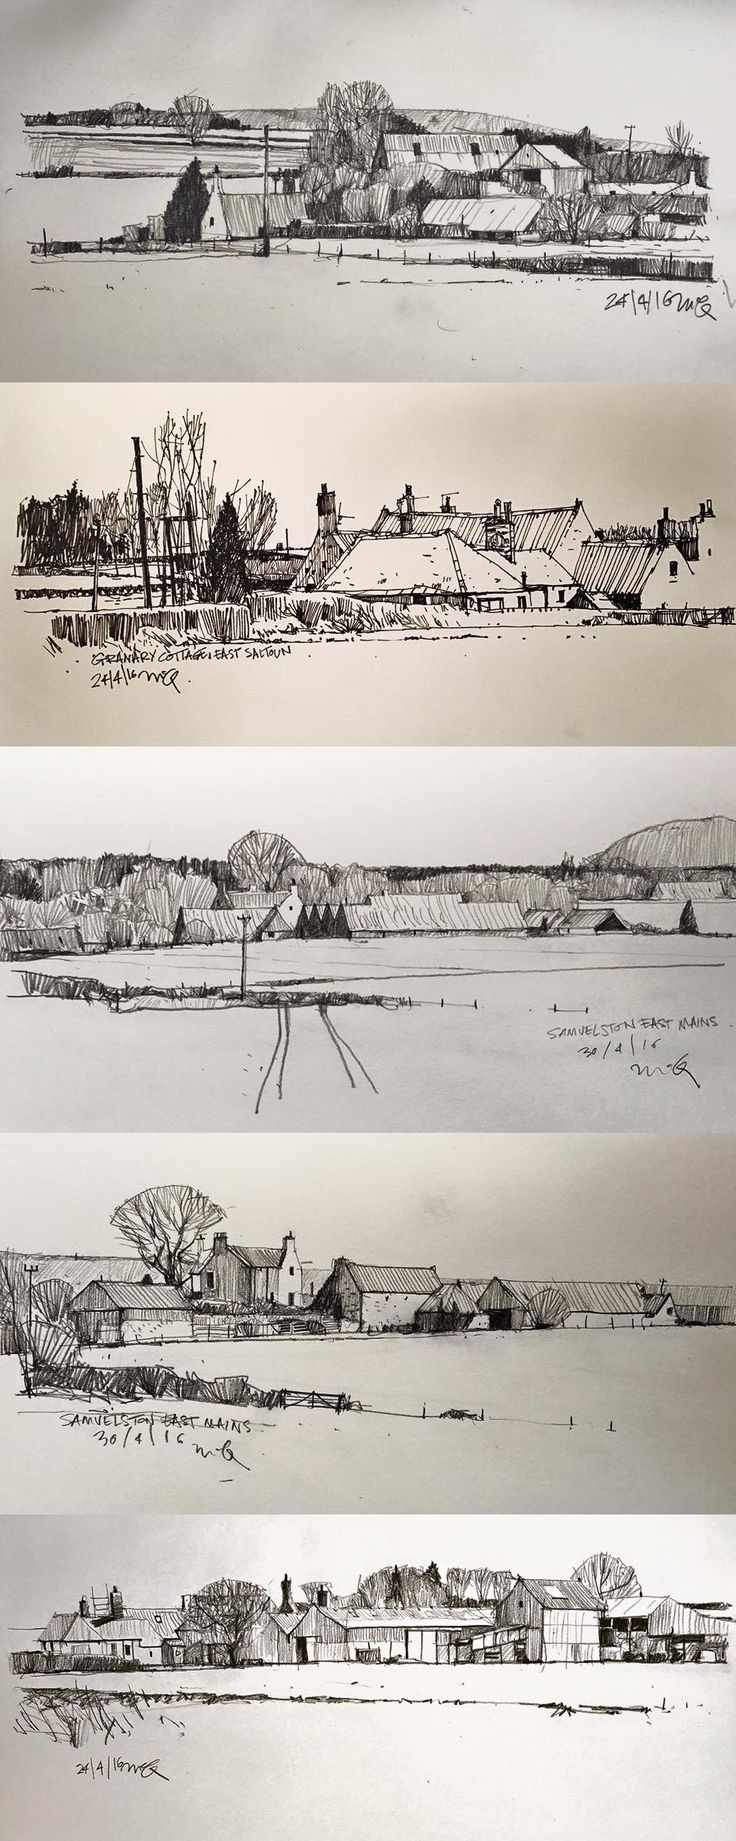 24/4/16 McQ
GRANARY COTTAGE, EAST SALTOUN
24/4/16 McQ
SAMUELSTON EAST MAINS
30/4/16
McQ
SAMUELSTON EAST MAINS
30/4/16 McQ
24/4/16 McQ